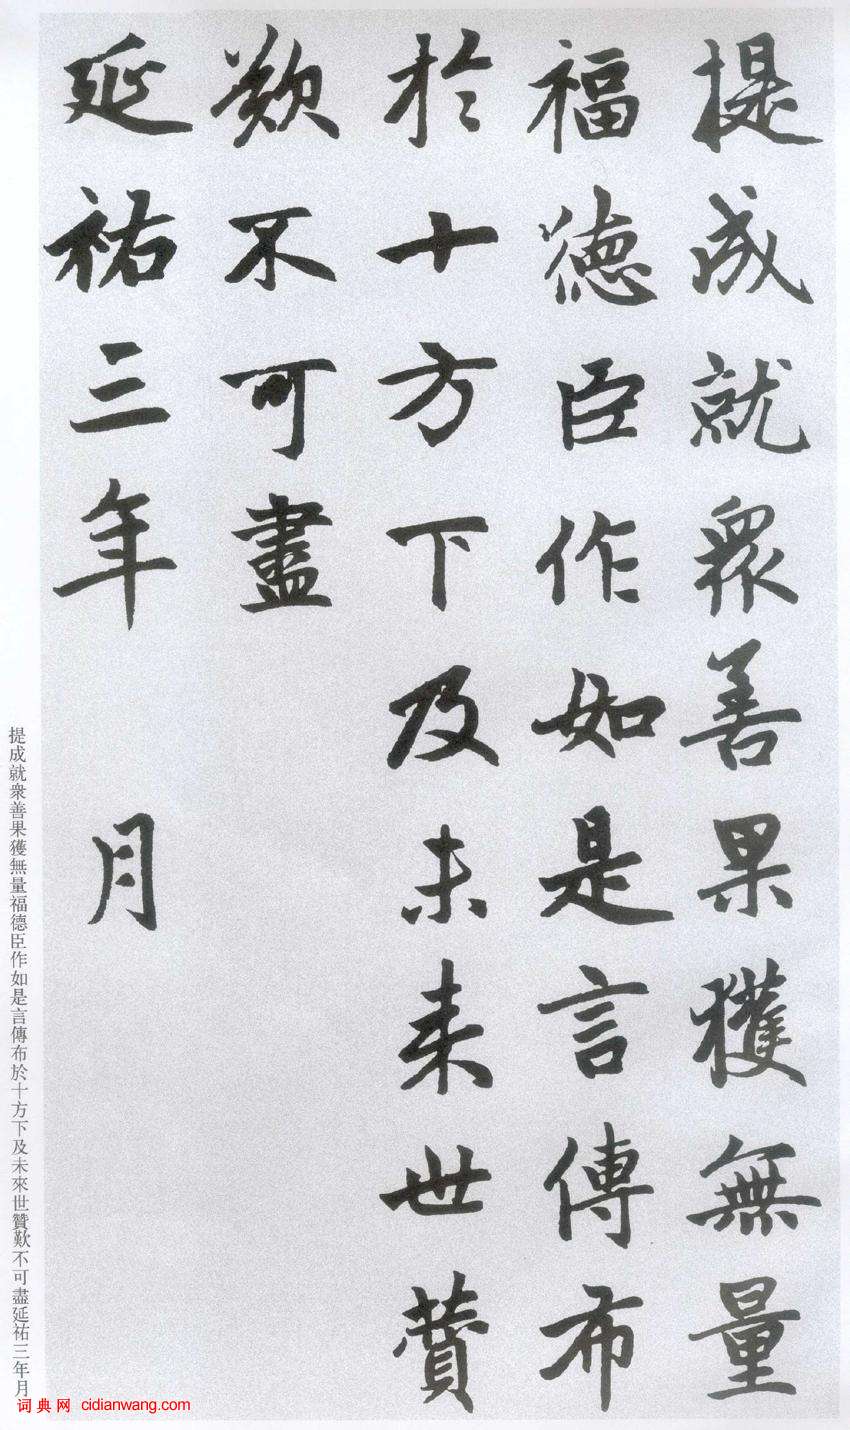 提成就衆善果獲無量
福德臣作如是言傳布
於十方下及未来世賛
歎不可盡
延祐三年 月
提成就衆善果獲無量福德臣作如是言傳布於十方下及未來世贊歎不可盡延祐三年月
词典网 cidianwang.com